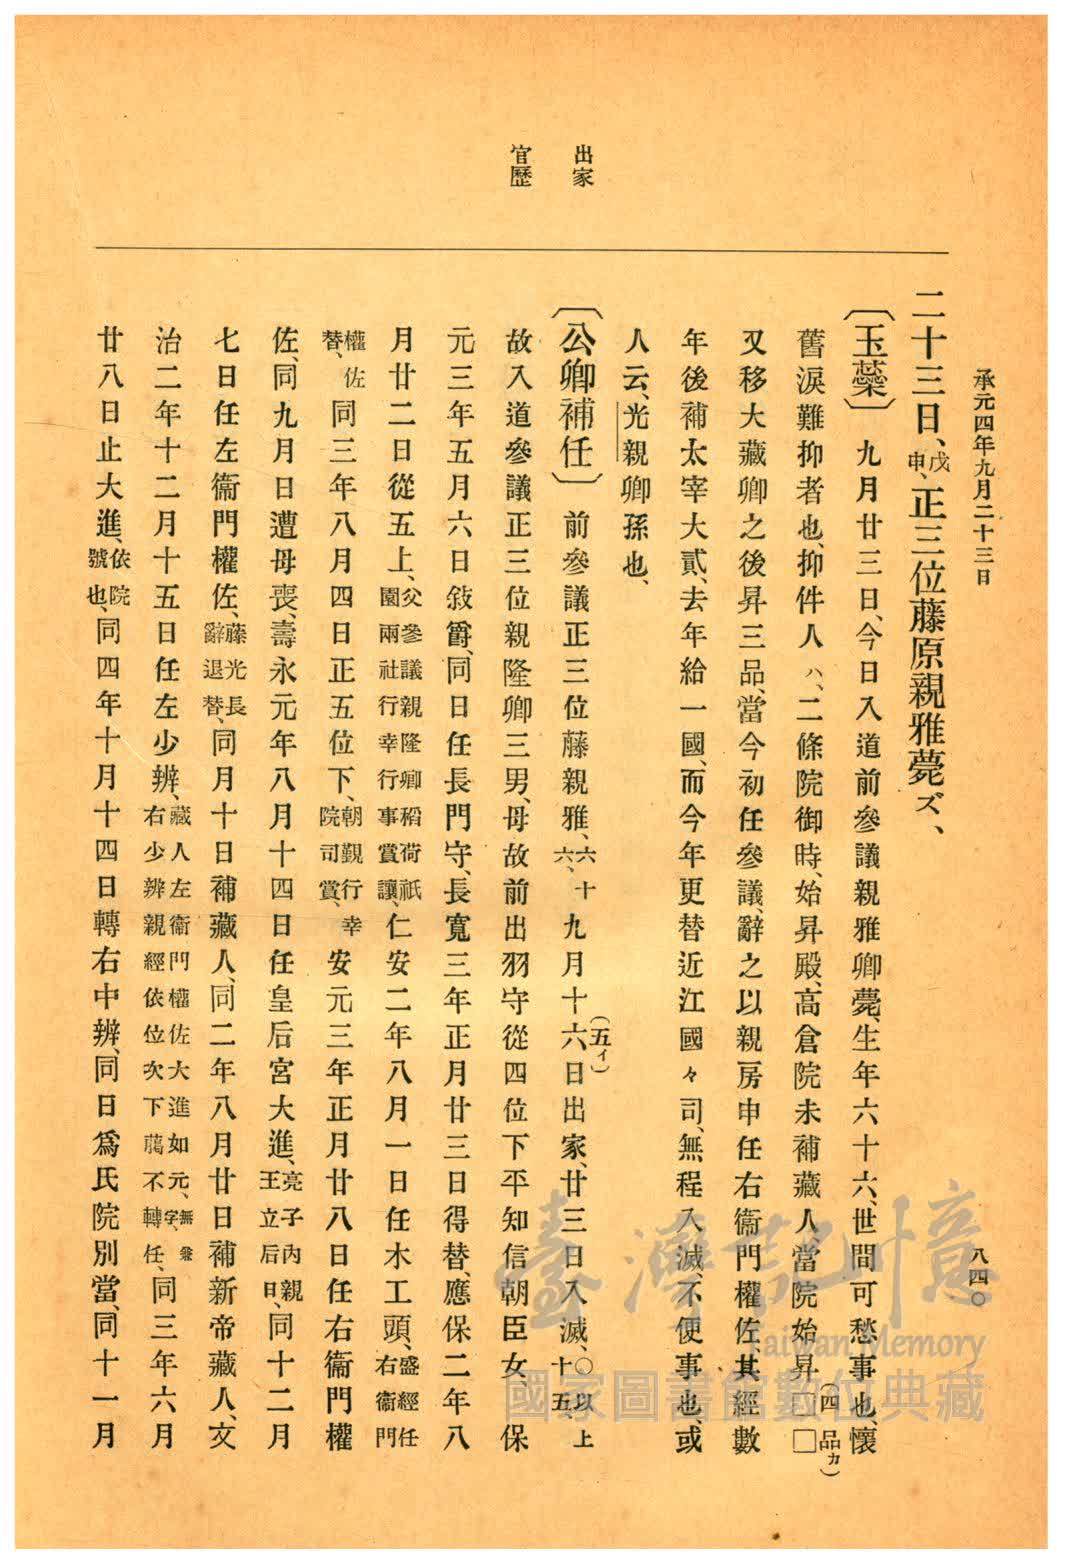 承元四年九月二十三日
八四〇
出家
官歷
二十三日、戊申、正三位藤原親雅薨ズ、
〔玉蘂〕九月廿三日、今日入道前參議親雅卿薨、生年六十六、世間可愁事也、懷
舊淚難抑者也、抑件人ハ、二條院御時、始昇殿、高倉院未補藏人當院始昇□□(四品カ)
又移大藏卿之後昇三品、當今初任參議、辭之以親房申任右衞門權佐、其經數
年後補太宰大貳、去年給一國、而今年更替近江國々司、無程入滅、不便事也、或
人云、光親卿孫也、
〔公卿補任〕前參議正三位藤親雅、六十六、九月十六日(五イ)出家、廿三日入滅、〇以上十五、
故入道參議正三位親隆卿三男、母故前出羽守從四位下平知信朝臣女、保
元三年五月六日敍爵、同日任長門守、長寬三年正月廿三日得替、應保二年八
月廿二日從五上、父參議親隆卿稻荷祇園兩社行幸行事賞讓、仁安二年八月一日任木工頭、盛經任右衞門
權佐替、同三年八月四日正五位下、朝覲行幸院司賞、安元三年正月廿八日任右衞門權
佐、同九月日遭母喪、壽永元年八月十四日任皇后宮大進、亮子內親王立后日、同十二月
七日任左衞門權佐、藤光長辭退替、同月十日補藏人、同二年八月廿日補新帝藏人、文
治二年十二月十五日任左少辨、藏人左衞門權佐大進如元、無兼字、右少辨親經依位次下﨟不轉任、同三年六月
廿八日止大進、依院號也、同四年十月十四日轉右中辨、同日爲氏院別當、同十一月
臺灣記憶
Taiwan Memory
國家圖書館數位典藏